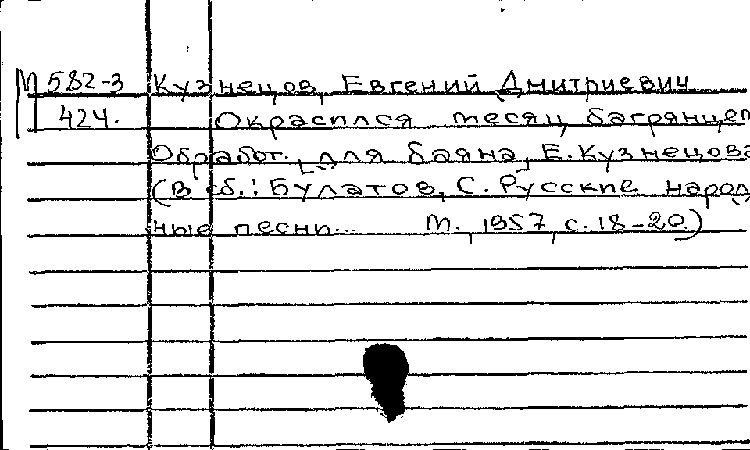 М 582-3 Кузнецов, Евгений Дмитриевич
424. Окрасился месяц багрянцем
Обработ. для баяна, Е. Кузнецова
(В сб.: Булатов, С. Русские народ
ные песни... М., 1957, с. 18-20.)